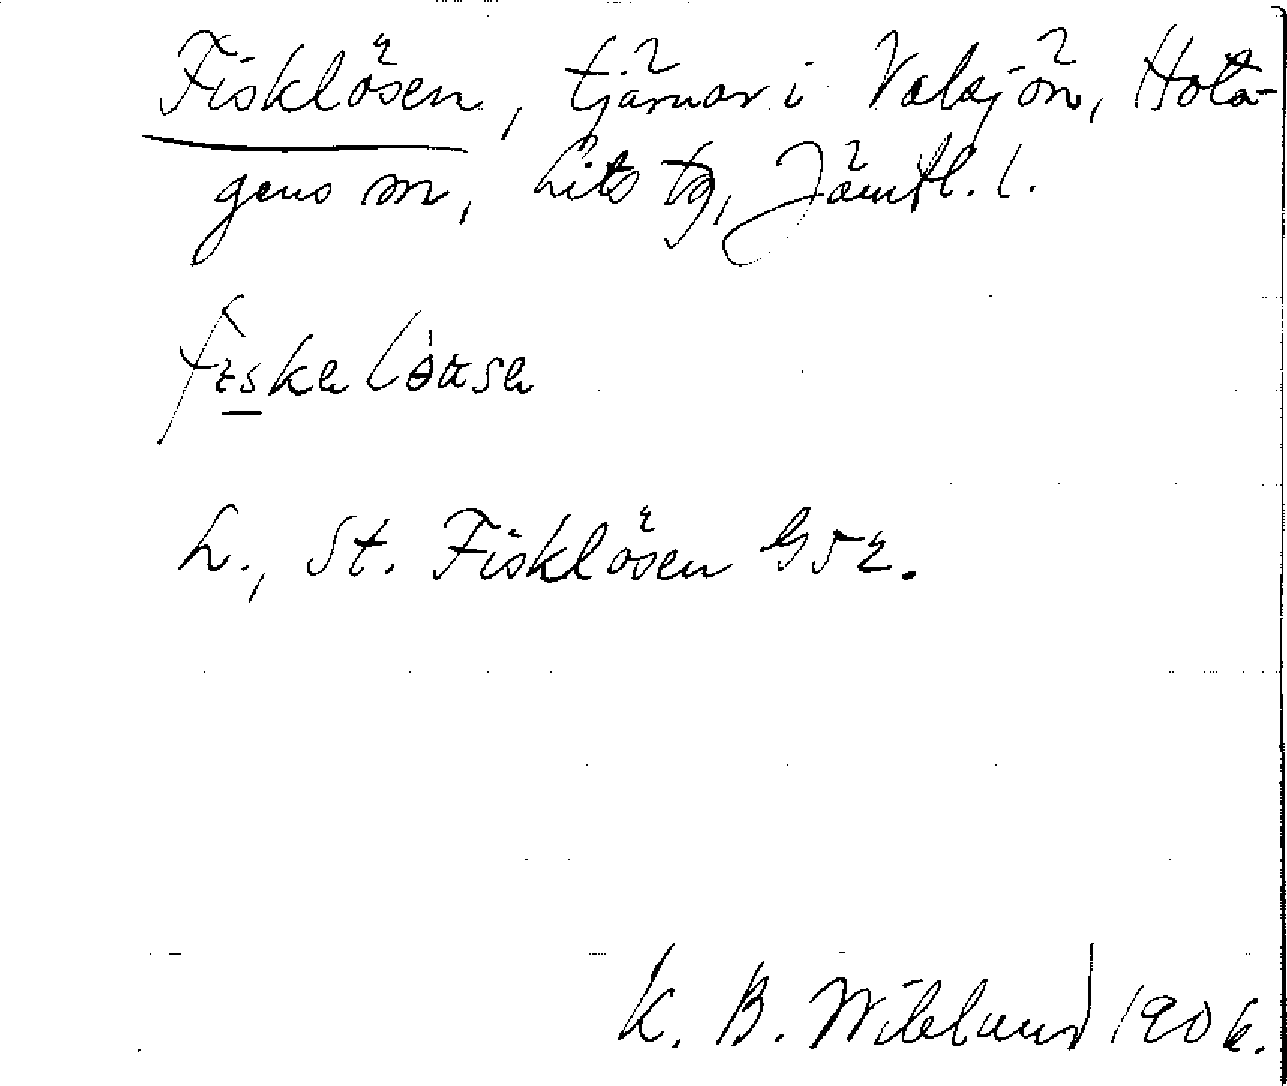 Fisklösen, tjärnar i Valsjön, Hota-
gens sn, Lits tg, Jämtl. l.
L., St. Fisklösen G52.
K. B. Wiklund 1906.